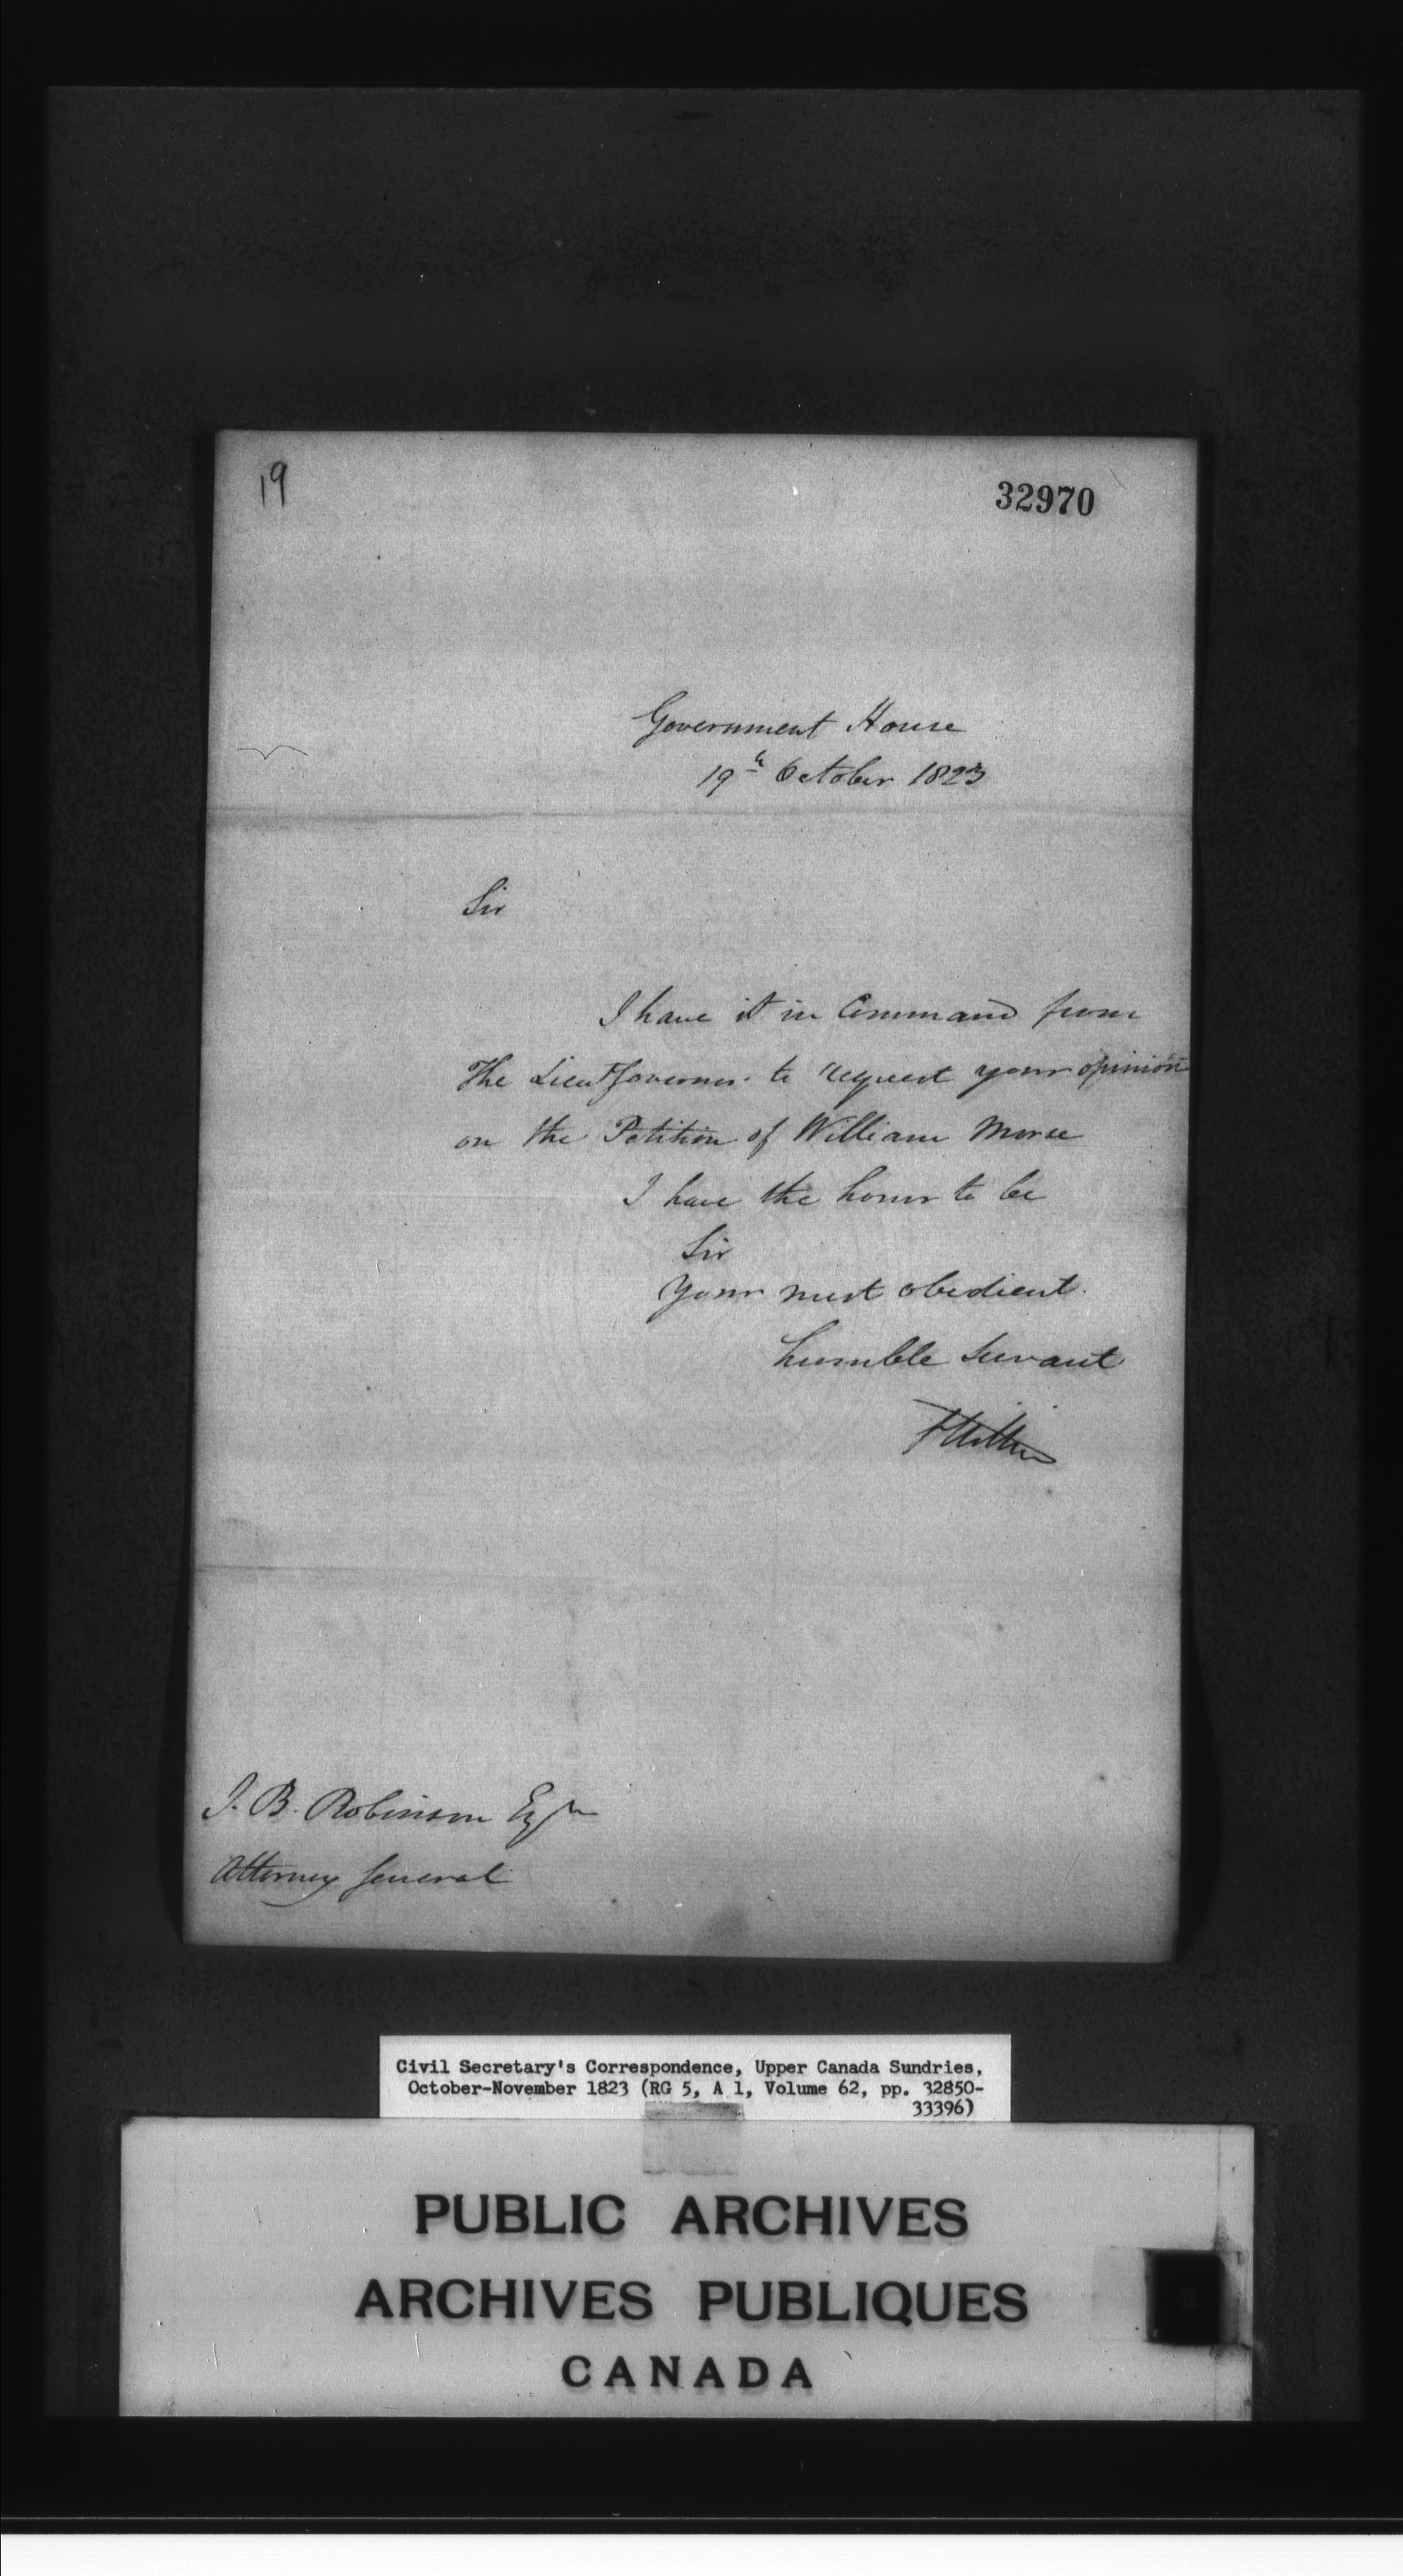 19
32970
Government House
19th October 1823
Sir
I have it in Command from
The Lieut Governor to request your opinion
on the Petition of William Morse
I have the honor to be
Sir
Your most obedient
humble Servant
J. B. Robinson Esqr
Attorney General
Civil Secretary's Correspondence, Upper Canada Sundries,
October-November 1823 (RG 5, A 1, Volume 62, pp. 32850-
33396)
PUBLIC ARCHIVES
ARCHIVES PUBLIQUES
CANADA